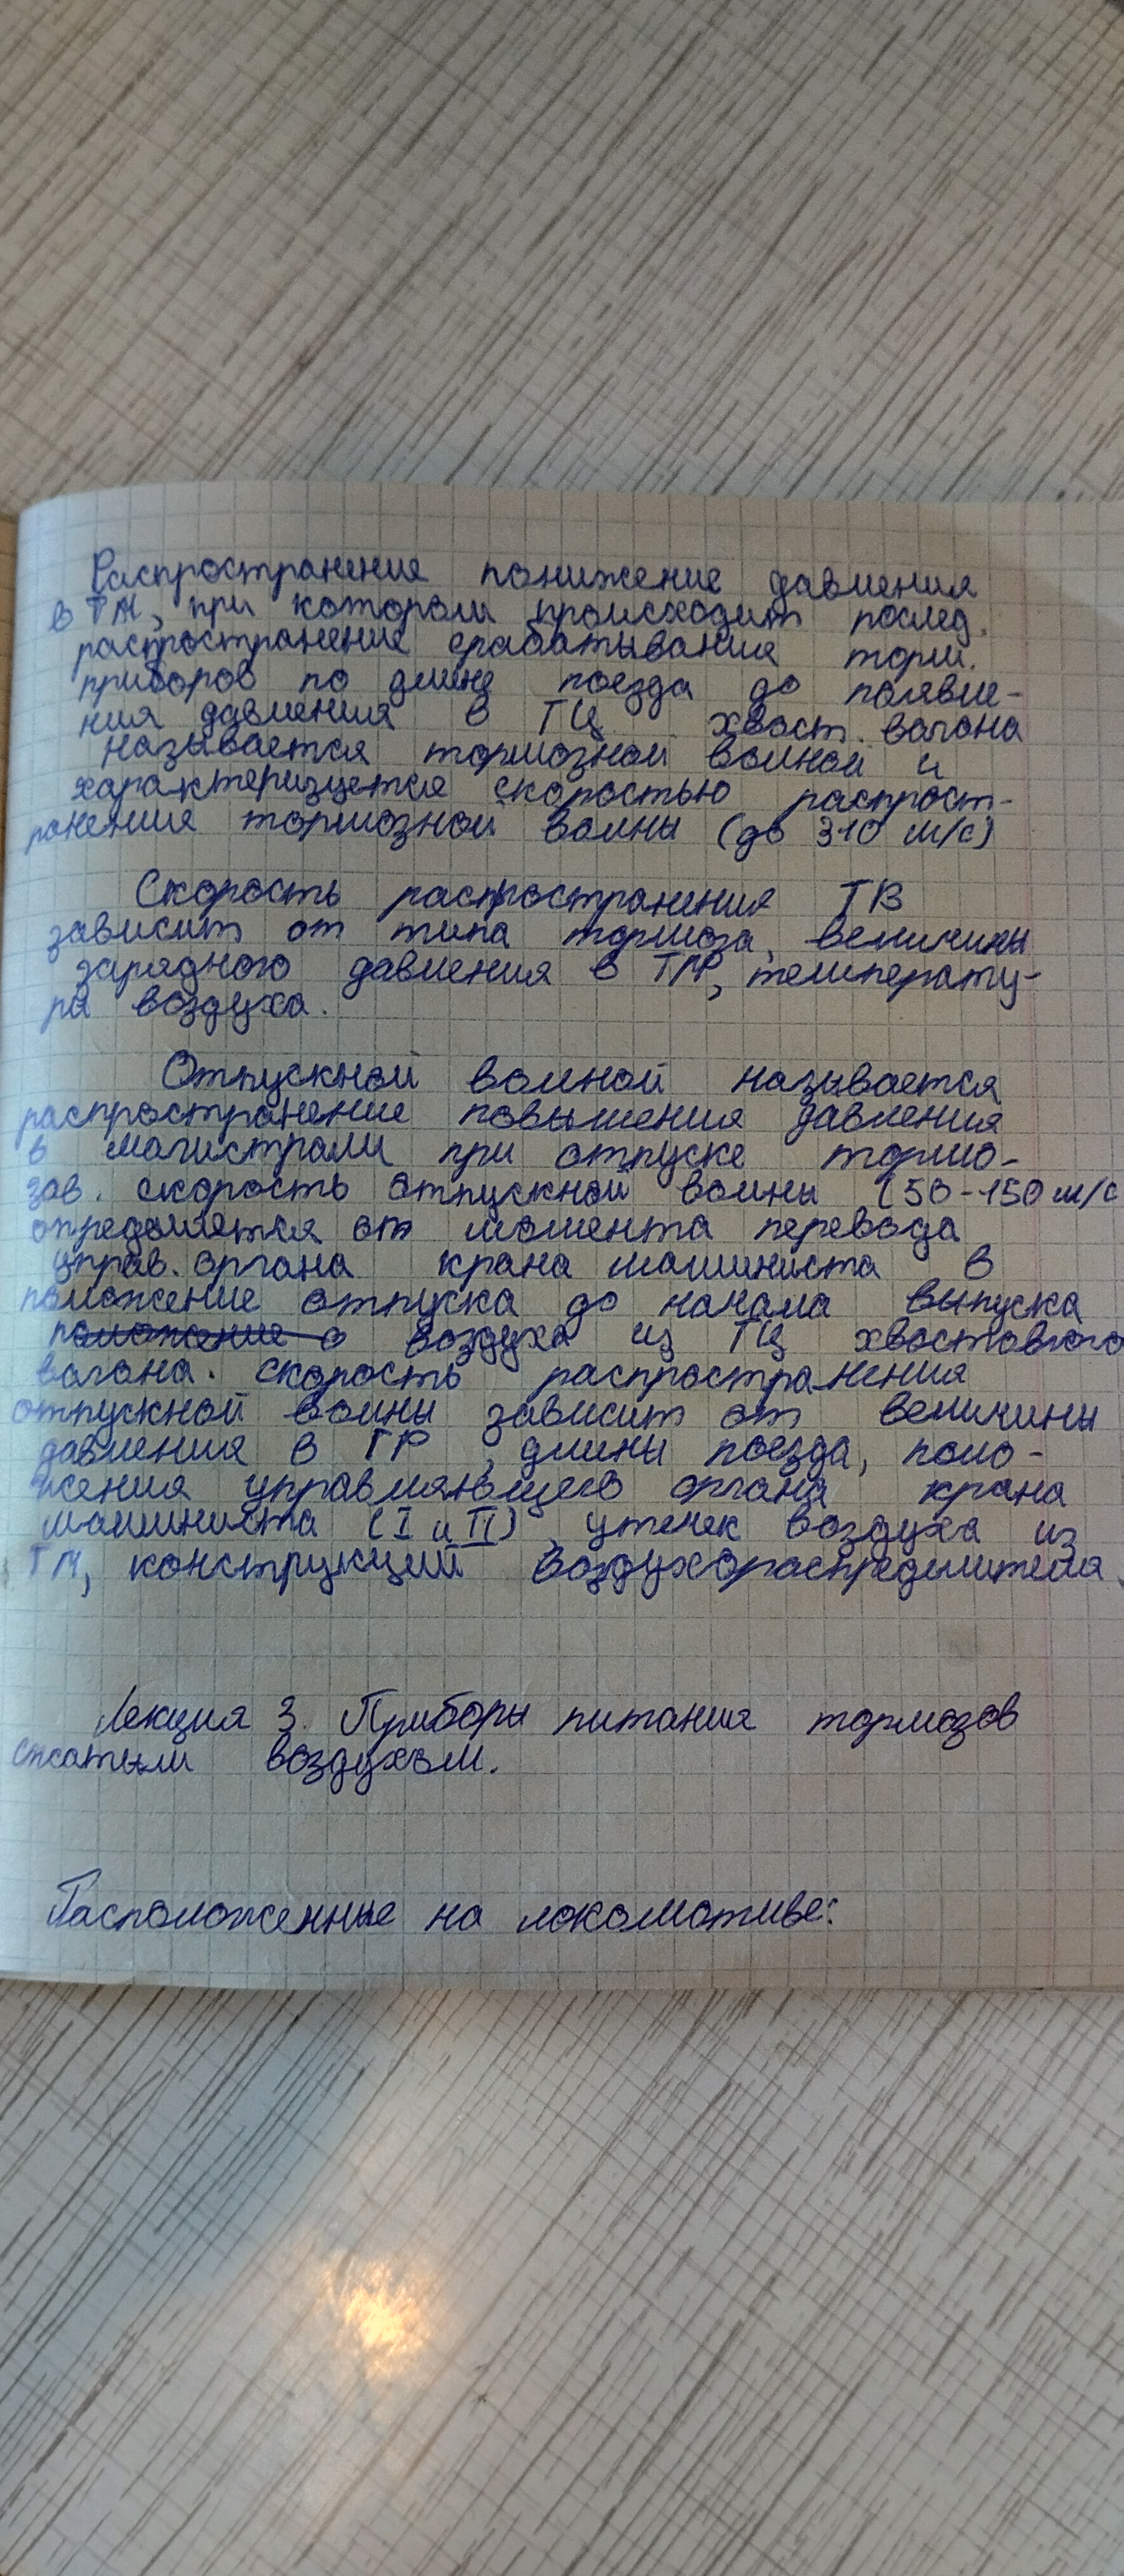 Распространение понижение давления
в ТМ, при котором происходит послед.
распространение срабатывания торм.
приборов по длине поезда до появле-
ния давления в ТЦ хвост. вагона
называется тормозной волной и
характеризуется скоростью распрост-
ранения тормозной волны (до 310 м/с)
Скорость распространения ТВ
зависит от типа тормоза, величины
зарядного давления в ТМ, температу-
ра воздуха.
Отпускной волной называется
распространение повышения давления
в магистрали при отпуске тормо-
зов. скорость отпускной волны (50-150 м/с
определяется от момента перевода
управ. органа крана машиниста в
положение отпуска до начала выпуска
положение о воздуха из ТЦ хвостового
вагона. скорость распространения
отпускной волны зависит от величины
давления в ГР, длины поезда, поло-
жения управляющего органа крана
машиниста (I и II), утечек воздуха из
ТМ, конструкций воздухораспределителя.
Лекция 3. Приборы питания тормозов
сжатым воздухом.
Расположенные на локомотиве: